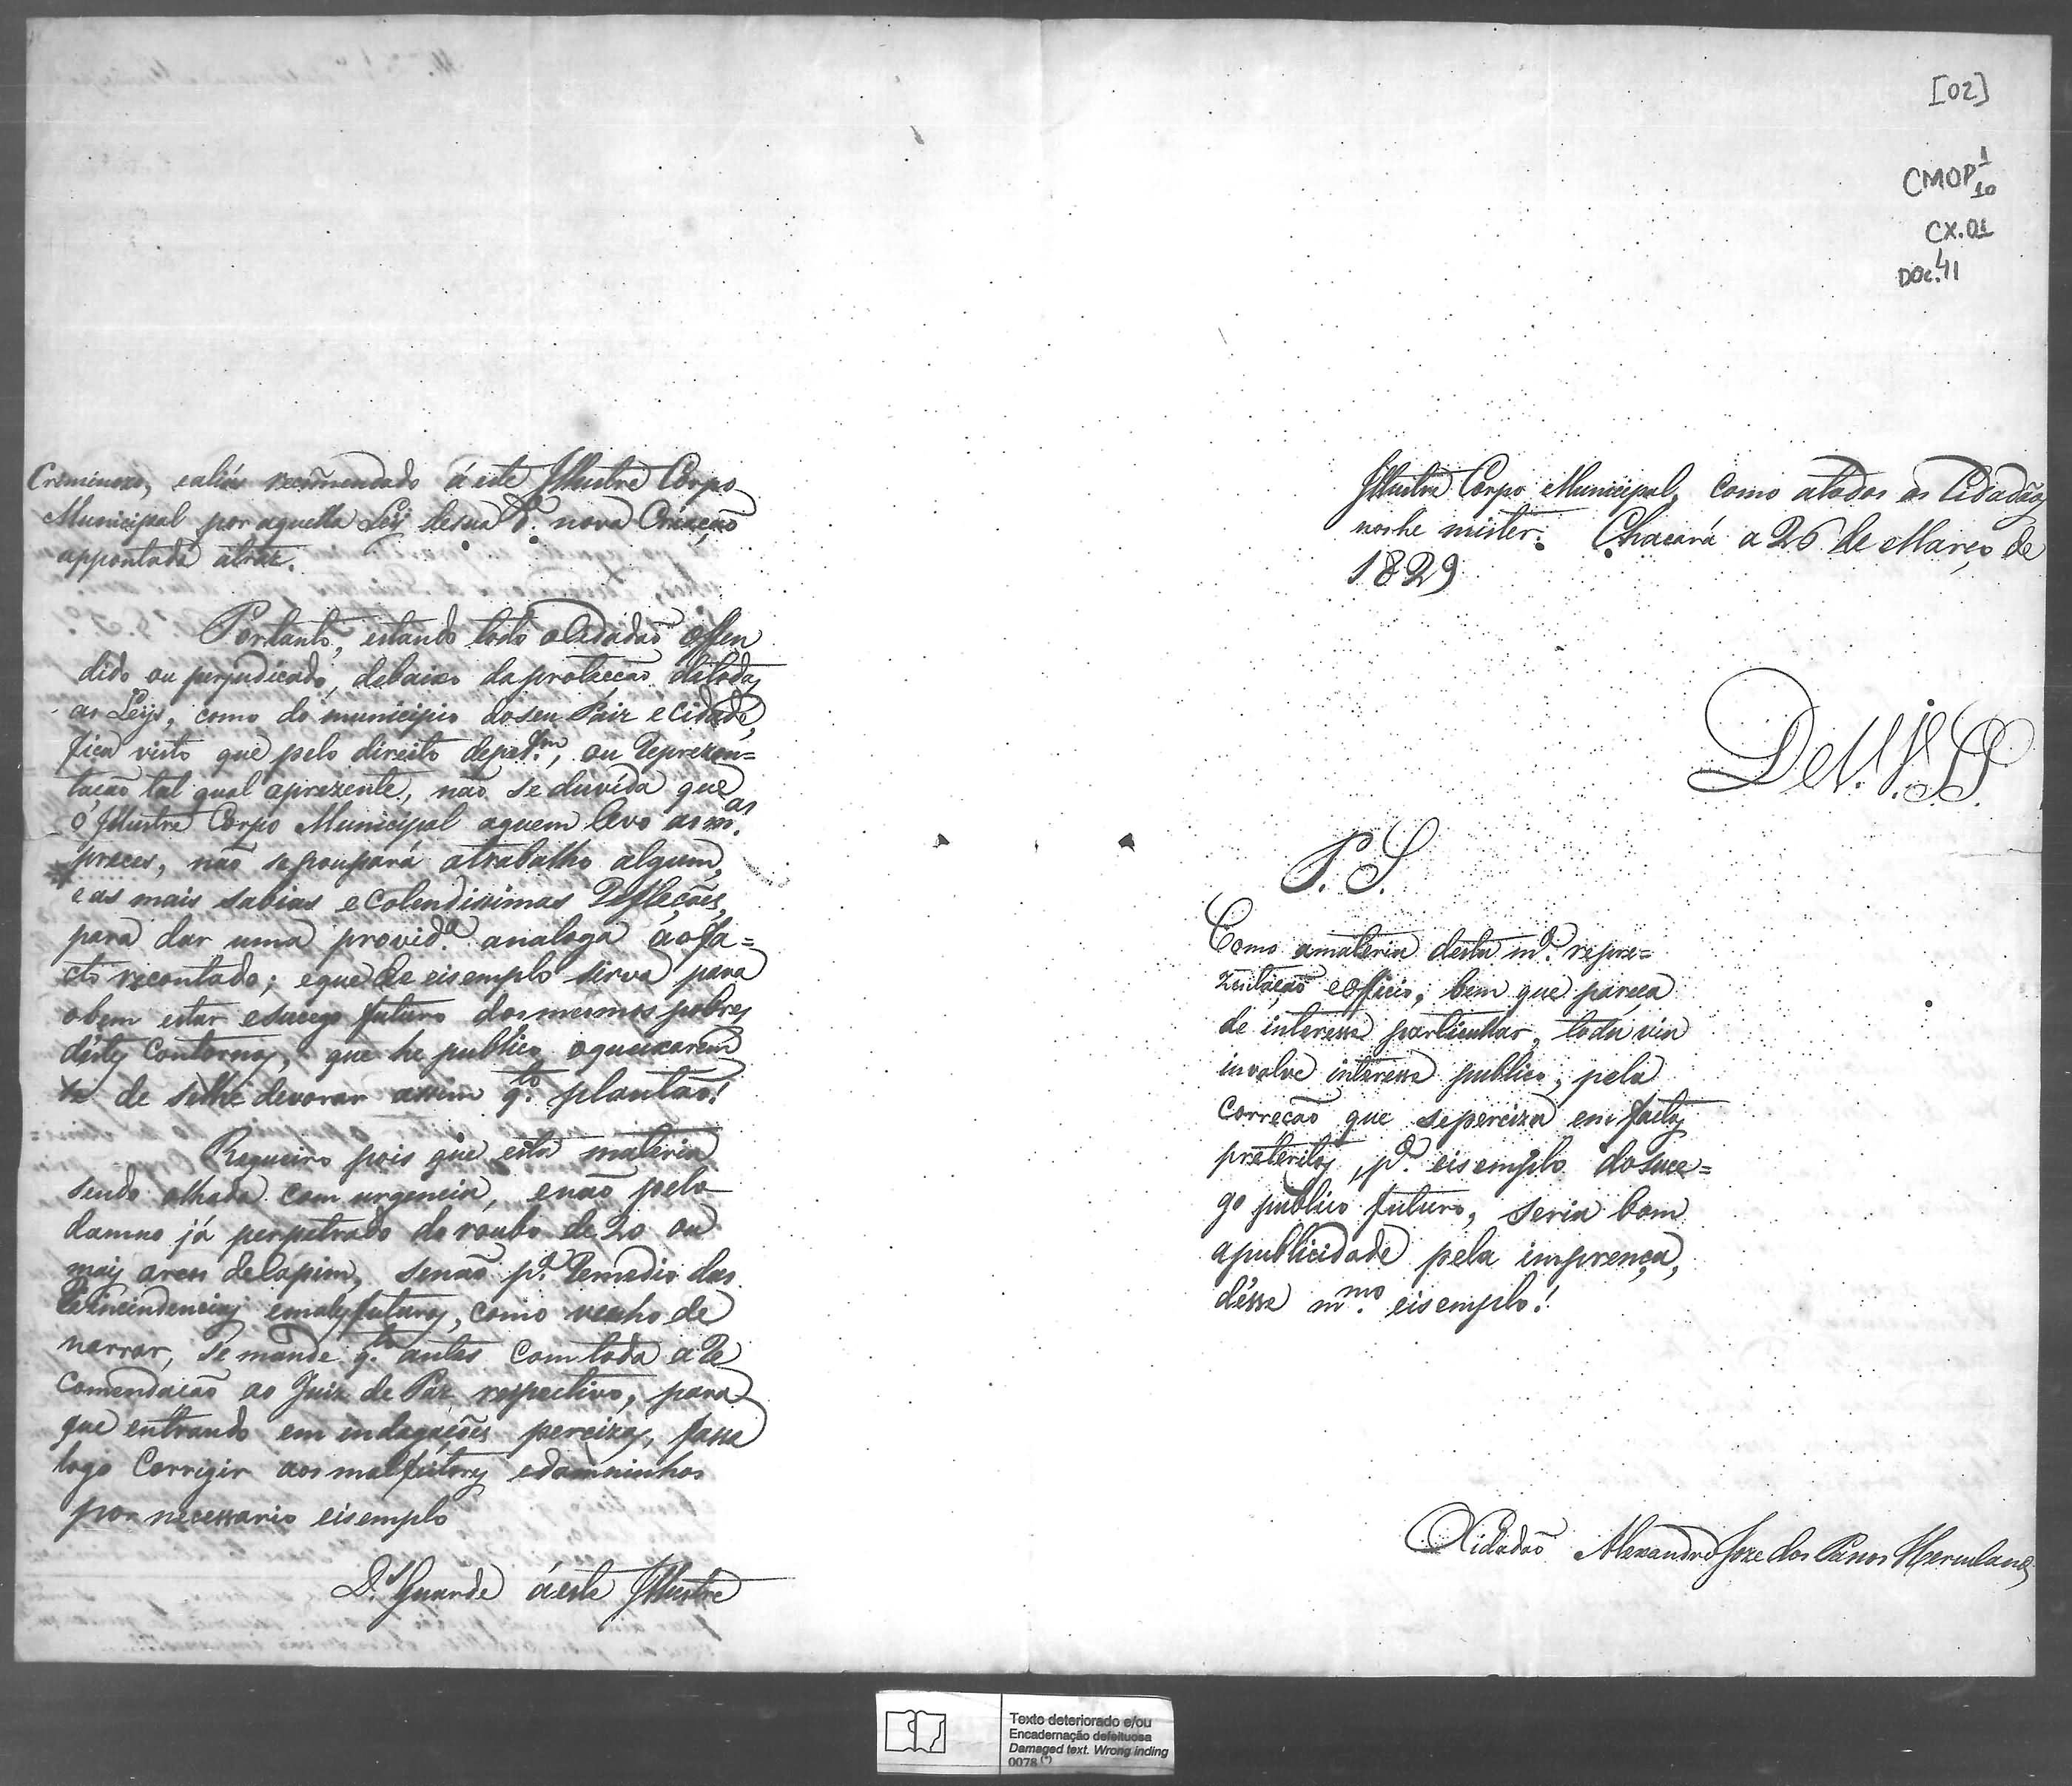 Criminozo, ealiás recomendado á este Illustre Corpo
Municipal por aquella Ley desua P. nova Creação
appontada atraz.
Portanto, estando todo oCidadaõ offen
dido ou perjudicado, debaixo daprotecçaõ detodas
as Leys, como do municipio doseu Paiz eCidade,
fica visto que pelo direito depet.m, ou Reprezen=
taçaõ tal qual aprezente, naõ se duvída que
ó Illustre Corpo Municipal aquem levo as m.as
preces, naõ sepoupará atrabalho algum,
e as mais sabias eColendissimas Refleçoẽs,
para dar uma provid.a analoga áofa=
cto recontado; eque de eisemplo sirva para
obem estar esucego futuro dosmesmos pobres
déstes Contornos, que he publico oqueixarem
se de selhe devorar assim q.to plantaõ!
Requeiro pois que esta materia
sendo olhada com urgencia, enaõ pelo
damno já perpetrado do roubo de 20 ou
mais arcos deCapim, senaõ p.a Remedio das
Reincindencias emales futuros, como venho de
narrar, se mande q.to antes com toda a Re
comendaçaõ ao Juiz de Paz respectivo, para
que entrando em indagaçoẽs percizas, possa
logo Corrigir aos malfeitores edamninhos
por necessario eisemplo
D.s Guarde áeste Illustre
[02]
CMOP 1
10
CX.01
DOC.41
Illustre Corpo Municipal, como atodos os Cidadaõs
nos he mister. Chacará a 26 de Março de
1829
P. S.
Como amateria desta m.a repre=
zentaçaõ eofficio, bem que pareça
de interesse particullar, toda via
involve interesse publico, pela
Correçaõ que seperciza em factos
preteritos, p.a eisemplo dosuce=
go publico futuro, seria bom
apublicidade pela imprença,
désse m.mo eisemplo!
OCidadaõ Alexandre Joze dos Passos Herculano
Texto deteriorado e/ou
Encadernação defeituosa
Damaged text. Wrong inding
0078 (*)